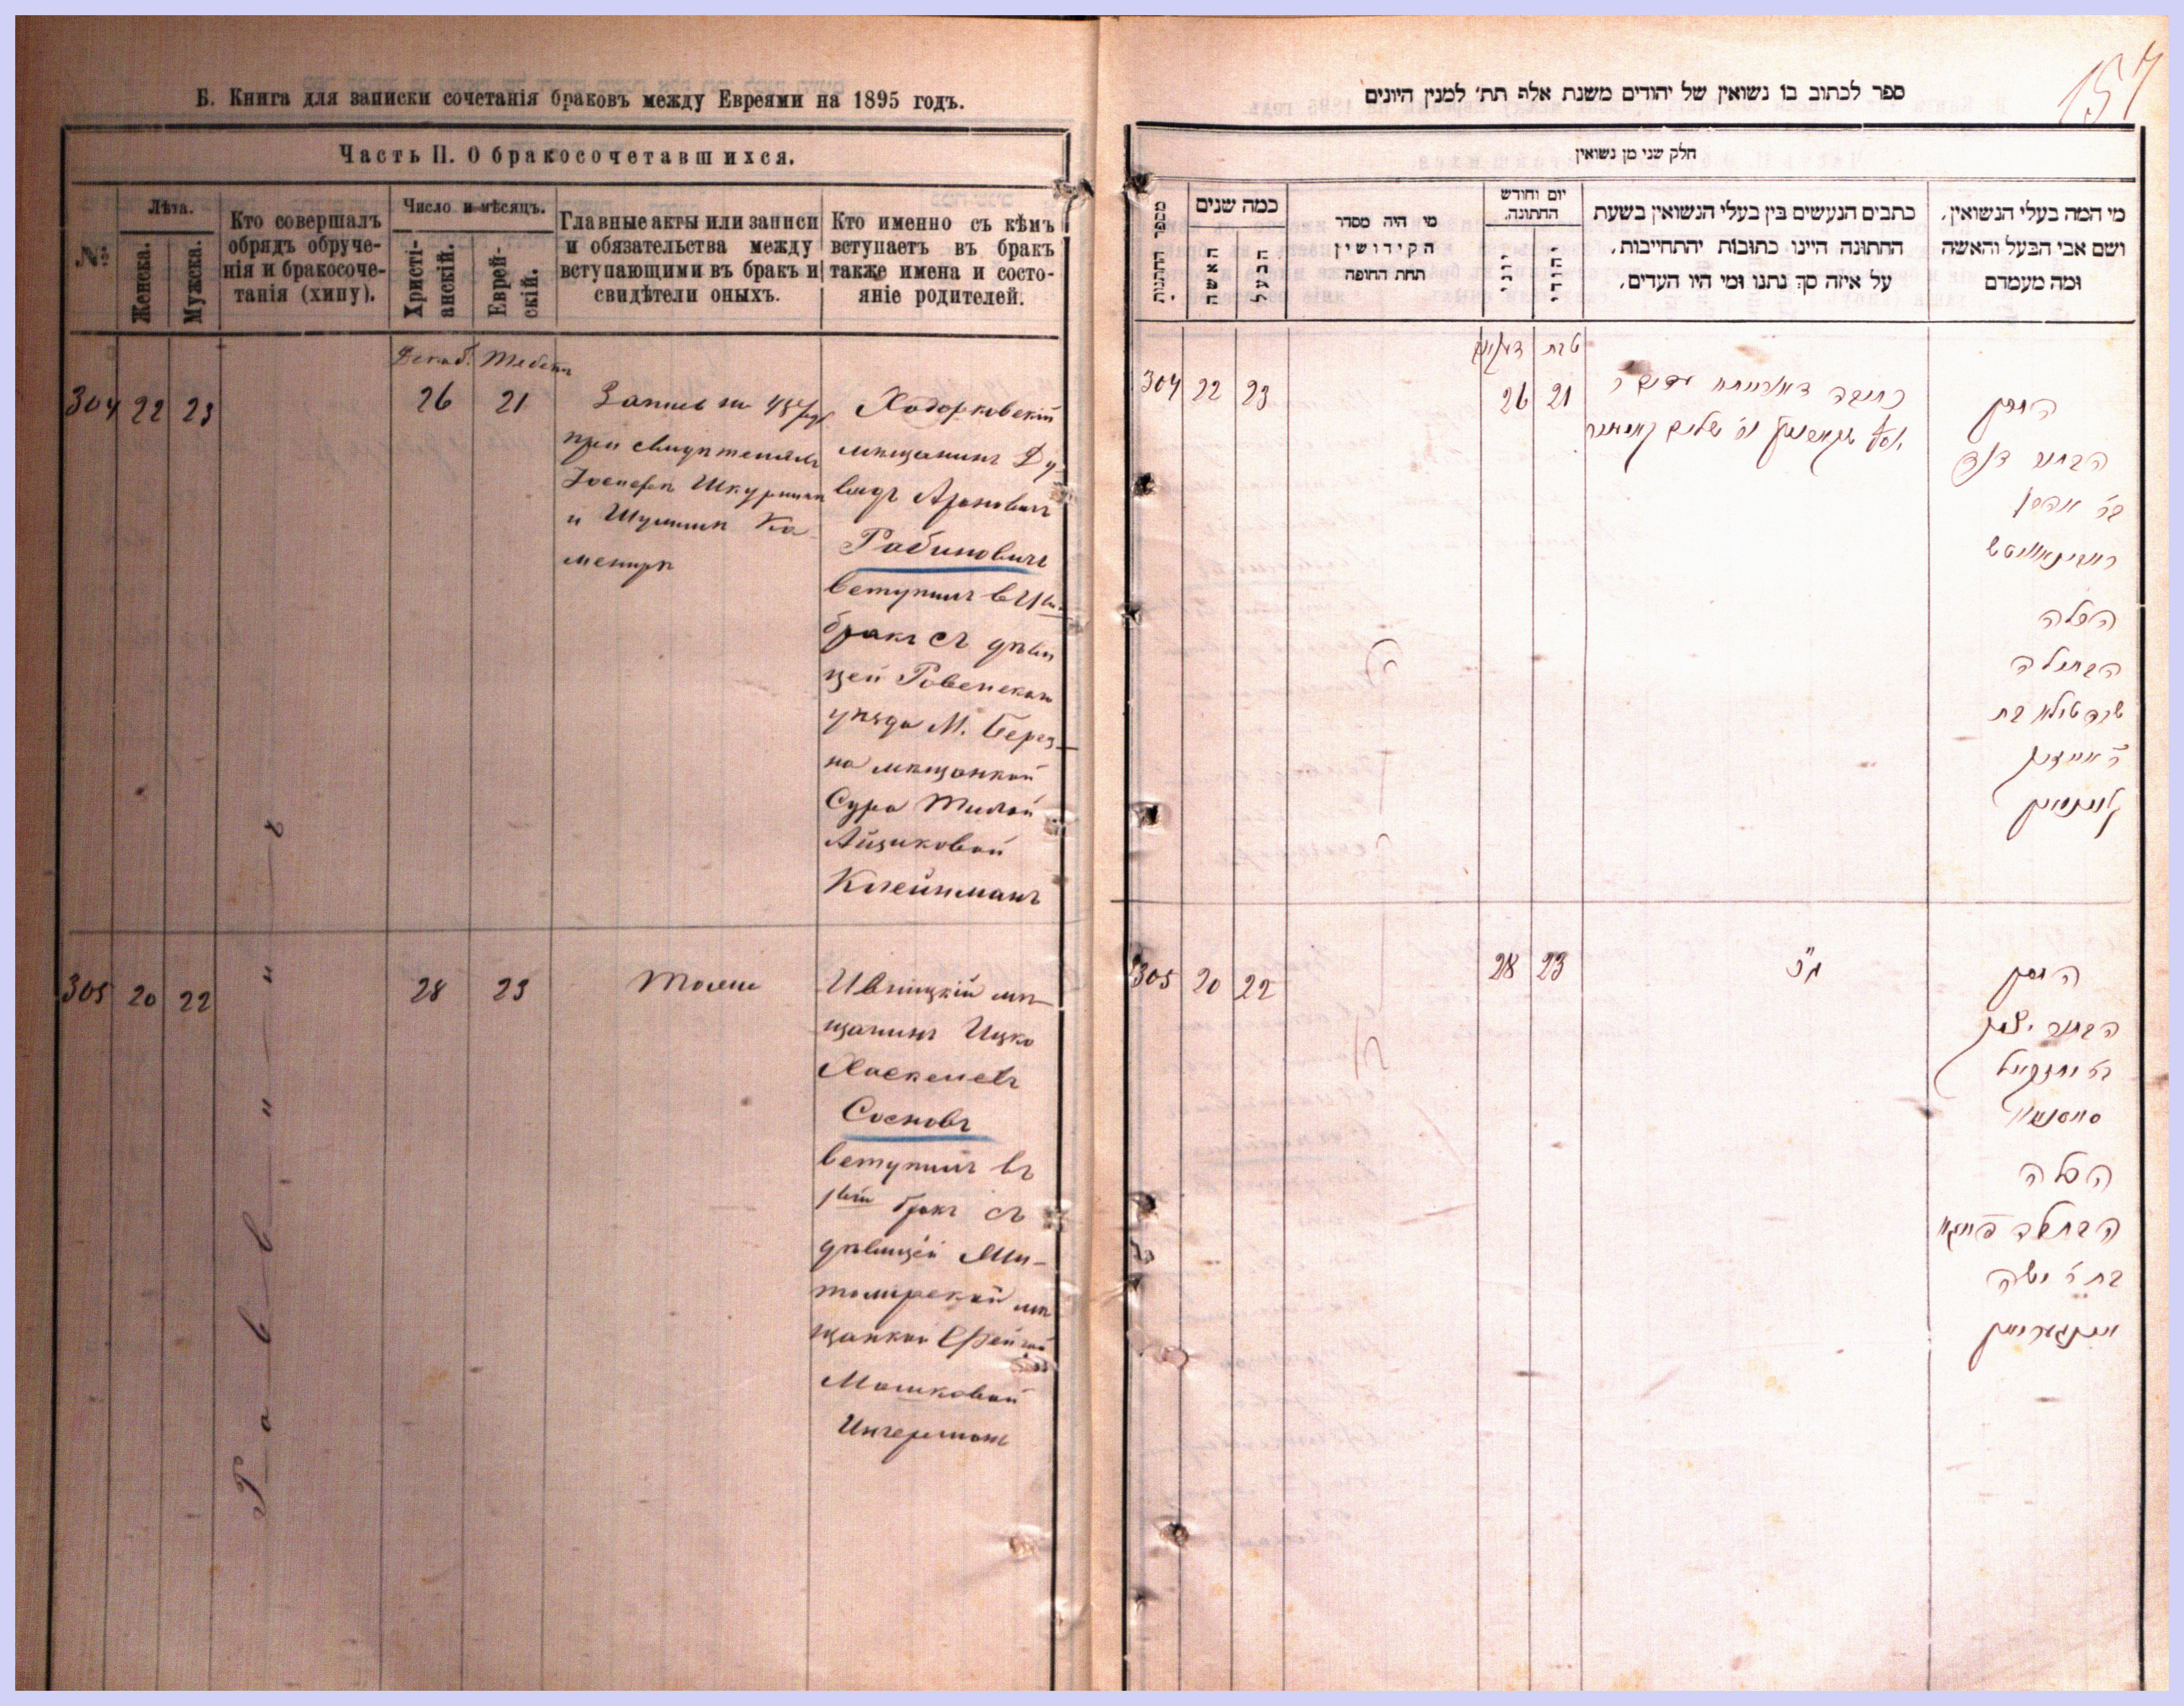 Б. Книга для записки сочетанія браковъ между Евреями на 1895 годъ.
Часть II. О бракосочетавшихся.
№
Лѣта.
Женска.
Мужска.
Кто совершалъ
обрядъ обруче-
нія и бракосоче-
танія (хипу).
Число и мѣсяцъ.
Христі-
анскій.
Еврей-
скій.
Главные акты или записи
и обязательства между
вступающими въ бракъ и
свидѣтели оныхъ.
Кто именно съ кѣмъ
вступаетъ въ бракъ
также имена и состо-
яніе родителей.
Декаб. Тебетъ
304 22 23 26 21
Запись на
при свидѣтеляхъ
Іосифъ Шкурникъ
и Шулимъ Ка-
мениръ
Ходорковскій
мѣщанинъ Ду-
видъ Ароновичъ
Рабиновичъ
вступилъ въ
бракъ съ дѣви
цей Ровенскаго
уѣзда М. Берез-
на мѣщанкой
Сура Тилой
Айзиковой
Клейнманъ
305 20 22 28 23
Тоже
Ивницкій мѣ-
щанинъ Ицко
Хаскелевъ
Сосновъ
вступилъ въ
1ый бракъ съ
дѣвицей Жи-
томирской мѣ
щанкой Фейгой
Мошковой
Ингерманъ
Раввинъ
157
ספר לכתוב בו נשואין של יהודים משנת אלף תת׳ למנין היונים
חלק שני מן נשואין
מספר החתנות
כמה שנים
האשה
הבעל
מי היה מסדר
הקידושין
תחת החופה
יום וחודש
החתונה.
יוני
יהודי
כתבים הנעשים בין בעלי הנשואין בשעת
החתונה היינו כתובות יהתחייבות,
על איזה סך נתנו ומי היו העדים,
מי המה בעלי הנשואין,
ושם אבי הבעל והאשה
ומה מעמדם
טבת
304 22 23 26 21
כתובה דאורייתא
החתן
הבחור דוד
בר׳ אהרן
ראבינאוויטש
הכלה
הבתולה
שרה טילא בת
ר׳ אייזיק
קליינמאן
305 20 22 28 23
כנ״ל
החתן
הבחור יצחק
בר׳ יחזקאל
סאסנאוו
הכלה
הבתולה פייגא
בת ר׳ משה
אינגערמאן